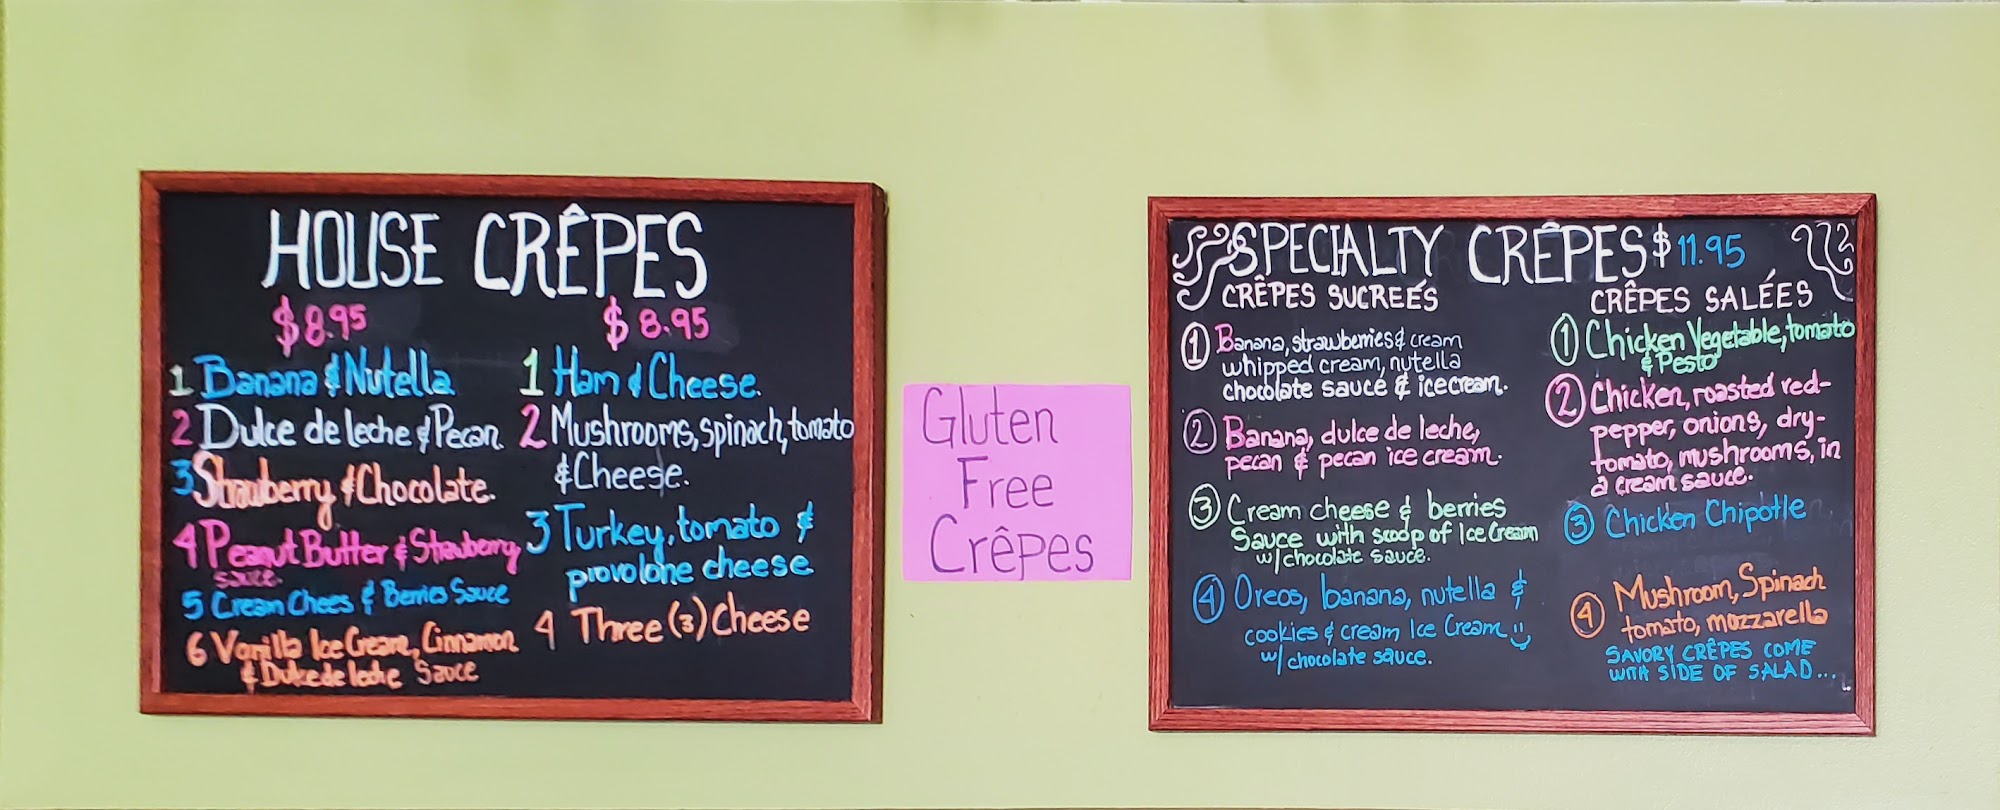 HOUSE CRÊPES
$8.95
1 Banana & Nutella
2 Dulce de leche & Pecan
3 Strawberry & Chocolate.
4 Peanut Butter & Strawberry
sauce.
5 Cream Chees & Berries Sauce
6 Vanilla Ice Cream, Cinnamon
& Dulce de leche Sauce
$8.95
1 Ham & Cheese.
2 Mushrooms, spinach, tomato
& Cheese.
3 Turkey, tomato &
provolone cheese
4 Three (3) Cheese
Gluten
Free
Crêpes
SPECIALTY CRÊPES $11.95
CRÊPES SUCREÉS
1 Banana, strawberries & cream
whipped cream, nutella
chocolate sauce & ice cream.
2 Banana, dulce de leche,
pecan & pecan ice cream.
3 Cream cheese & berries
Sauce with scoop of Ice Cream
w/chocolate sauce.
4 Oreos, banana, nutella &
cookies & cream Ice Cream
w/chocolate sauce.
CRÊPES SALÉES
1 Chicken Vegetable, tomato
& Pesto
2 Chicken, roasted red-
pepper, onions, dry-
tomato, mushrooms, in
a cream sauce.
3 Chicken Chipotle
4 Mushroom, Spinach
tomato, mozzarella
SAVORY CRÊPES COME
WITH SIDE OF SALAD...